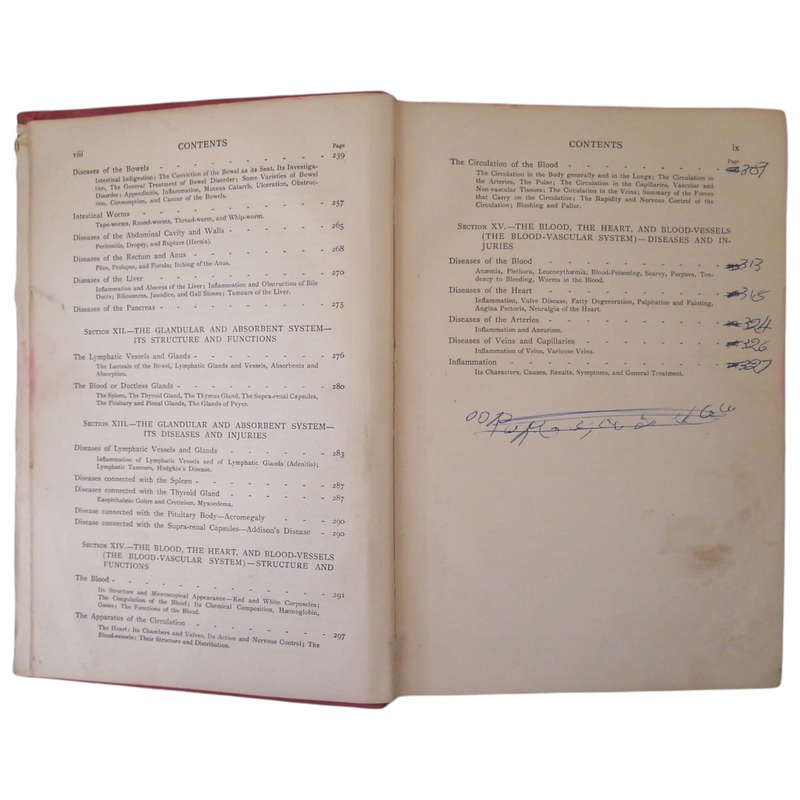 viii
CONTENTS
Page
Diseases of the Bowels - - - - - - - - - 239
Intestinal Indigestion; The Conviction of the Bowel as its Seat, Its Investiga-
tion, The General Treatment of Bowel Disorder; Some Varieties of Bowel
Disorder: Appendicitis, Inflammation, Mucous Catarrh, Ulceration, Obstruc-
tion, Consumption, and Cancer of the Bowels.
Intestinal Worms - - - - - - - - - 257
Tape-worms, Round-worms, Thread-worm, and Whip-worm.
Diseases of the Abdominal Cavity and Walls - - - - - - 265
Peritonitis, Dropsy, and Rupture (Hernia).
Diseases of the Rectum and Anus - - - - - - - 268
Piles, Prolapse, and Fistula; Itching of the Anus.
Diseases of the Liver - - - - - - - - - 270
Inflammation and Abscess of the Liver; Inflammation and Obstruction of Bile
Ducts; Biliousness, Jaundice, and Gall Stones; Tumours of the Liver.
Diseases of the Pancreas - - - - - - - - 275
Section XII.—THE GLANDULAR AND ABSORBENT SYSTEM—
ITS STRUCTURE AND FUNCTIONS
The Lymphatic Vessels and Glands - - - - - - - 276
The Lacteals of the Bowel, Lymphatic Glands and Vessels, Absorbents and
Absorption.
The Blood or Ductless Glands - - - - - - - - 280
The Spleen, The Thyroid Gland, The Thymus Gland, The Supra-renal Capsules,
The Pituitary and Pineal Glands, The Glands of Peyer.
Section XIII.—THE GLANDULAR AND ABSORBENT SYSTEM—
ITS DISEASES AND INJURIES
Diseases of Lymphatic Vessels and Glands - - - - - - 283
Inflammation of Lymphatic Vessels and of Lymphatic Glands (Adenitis);
Lymphatic Tumours, Hodgkin's Disease.
Diseases connected with the Spleen - - - - - - - 287
Diseases connected with the Thyroid Gland - - - - - - 287
Exophthalmic Goitre and Cretinism, Myxoedema.
Disease connected with the Pituitary Body—Acromegaly - - - 290
Disease connected with the Supra-renal Capsules—Addison's Disease - 290
Section XIV.—THE BLOOD, THE HEART, AND BLOOD-VESSELS
(THE BLOOD-VASCULAR SYSTEM)—STRUCTURE AND
FUNCTIONS
The Blood - - - - - - - - - - 291
Its Structure and Microscopical Appearance—Red and White Corpuscles;
The Coagulation of the Blood; Its Chemical Composition, Hæmoglobin,
Gases; The Functions of the Blood.
The Apparatus of the Circulation - - - - - - - 297
The Heart: Its Chambers and Valves, Its Action and Nervous Control; The
Blood-vessels: Their Structure and Distribution.
CONTENTS
ix
Page
The Circulation of the Blood - - - - - - - -
The Circulation in the Body generally and in the Lungs; The Circulation in
the Arteries, The Pulse; The Circulation in the Capillaries, Vascular and
Non-vascular Tissues; The Circulation in the Veins; Summary of the Forces
that Carry on the Circulation; The Rapidity and Nervous Control of the
Circulation; Blushing and Pallor.
Section XV.—THE BLOOD, THE HEART, AND BLOOD-VESSELS
(THE BLOOD-VASCULAR SYSTEM)—DISEASES AND IN-
JURIES
Diseases of the Blood - - - - - - - - - 313
Anæmia, Plethora, Leucocythæmia, Blood-Poisoning, Scurvy, Purpura, Ten-
dency to Bleeding, Worms in the Blood.
Diseases of the Heart - - - - - - - - - 315
Inflammation, Valve Disease, Fatty Degeneration, Palpitation and Fainting,
Angina Pectoris, Neuralgia of the Heart.
Diseases of the Arteries - - - - - - - - 324
Inflammation and Aneurism.
Diseases of Veins and Capillaries - - - - - - - 326
Inflammation of Veins, Varicose Veins.
Inflammation - - - - - - - - - - 327
Its Characters, Causes, Results, Symptoms, and General Treatment.